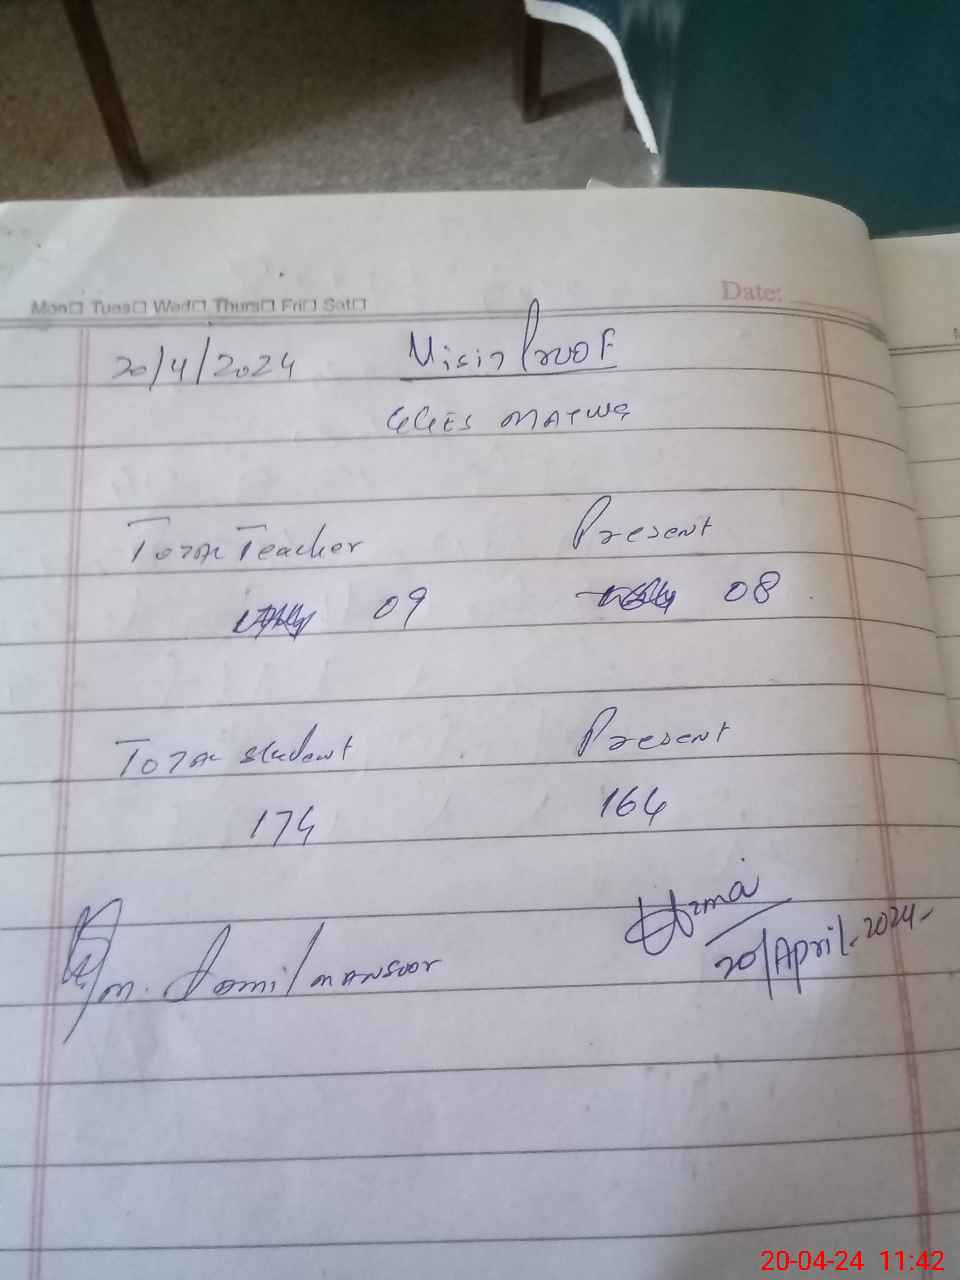 Mon Tues Wed Thurs Fri Sat
Date:
20/4/2024 Visit Proof
GGES
Total Teacher Present
09 08
Total student Present
174 164
Uzma
20/April-2024-
M. Jamil Mansoor
20-04-24 11:42